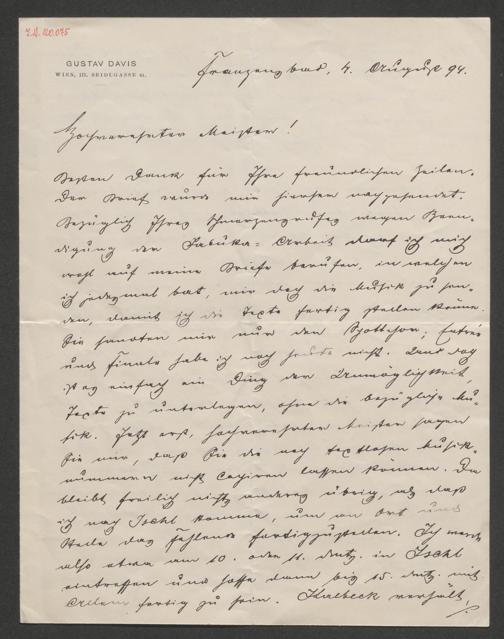 I.N. 120.075
GUSTAV DAVIS
WIEN, III. SEIDLGASSE
Franzensbad, 4. August 94.
Hochverehrter Meister!
Besten Dank für Ihre freundlichen Zeilen.
Der Brief wurde mir hierher nachgesendet.
Bezüglich Ihres Schmerzensrufes wegen Been-
digung der Jabuka-Arbeit darf ich mich
wohl auf meine Briefe berufen, in welchen
ich jedesmal bat, mir doch die Musik zu sen-
den, damit ich die Texte fertig stellen könne.
Sie sandten mir nur den Spottchor; Entrée
und Finale habe ich noch heute nicht. Und das
ist es einfach ein Ding der Unmöglichkeit,
Texte zu unterlegen, ohne die bezügliche Mu-
sik. Jetzt erst, hochverehrter Meister sagen
Sie mir, daß Sie die noch textlosen Musik-
nummern nicht copiren lassen können. Da
bleibt freilich nichts anderes übrig, als daß
ich nach Ischl komme, um an Ort und
Stelle das fehlende fertigzustellen. Ich werde
also etwa am 10. oder 11. dMts. in Ischl
eintreffen und hoffe dann bis 15. dMts. mit
Allem fertig zu sein. Kalbeck verhält